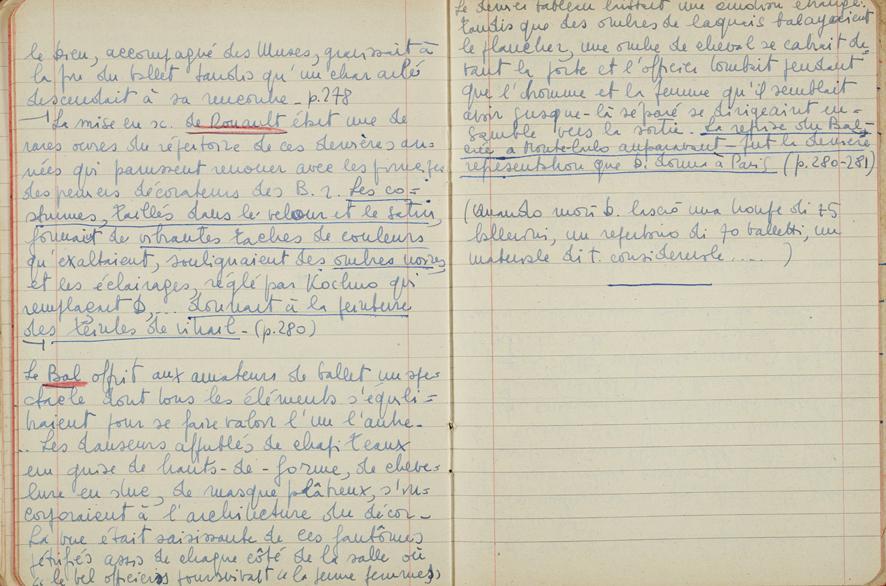 le Dieu, accompagné des Muses, gravissait à
la fin du ballet tandis qu'un char ailé
descendait à sa rencontre - p.278
La mise en sc. de Rouault était une de
rares ouvres du répertoire de ces dernières an=
nées qui parussent renouer avec les
des premiers décorateurs des B. r. Les co=
stumes, taillés dans le velour et le satin,
formait de vibrantes taches de couleurs
qu'exaltaient, soulignaient des ombres noires,
et les éclairages, réglé par Kochno qui
remplaçait D, ... donnait à la peinture
des teintes de vitrail - (p.280)
Le Bal offrit aux amateurs de ballet un spe=
ctacle dont tous les éléments s'équili=
braient pour se faire valoir l'un l'autre -
.. Les danseurs affublés de chapiteaux
en guise de hauts-de-forme, de cheve=
lure en stuc, de masque plâtreux, s'in=
corporaient à l'architecture du décor -
La vue était saisissante de ces fantômes
pétrifiés assis de chaque côté de la salle où
le bel officier poursuivait la jeune femme
Le dernier tableau une émotion étrange:
tandis que des ombres de laquais balayaient
le plancher, une ombre de cheval se cabrait de=
vant la porte et l'officier tombait pendant
que l'homme et la femme qu'il semblait
avoir jusque-là séparé se dirigeaient en=
semble vers la sortie. La reprise du Bal -
créé a Monte-Carlo auparavant - fut la dernière
représentation que D. donna à Paris (p.280-281)
(Quando morì D. lasciò una troupe di 75
ballerini, un repertorio di 70 balletti, un
materiale di t. considerevole ..... )